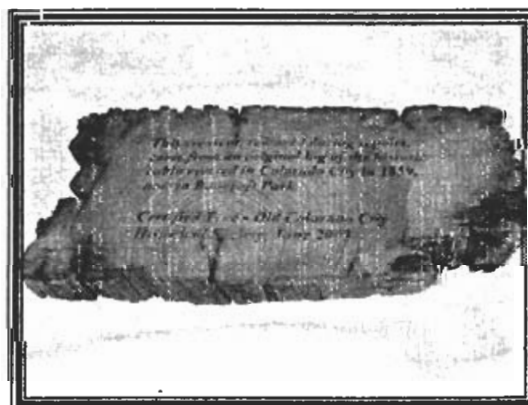 This
came from an original log of the historic
cabin erected in Colorado City in 1859,
now in Bancroft Park
Certified True - Old Colorado City
Historical Society, June